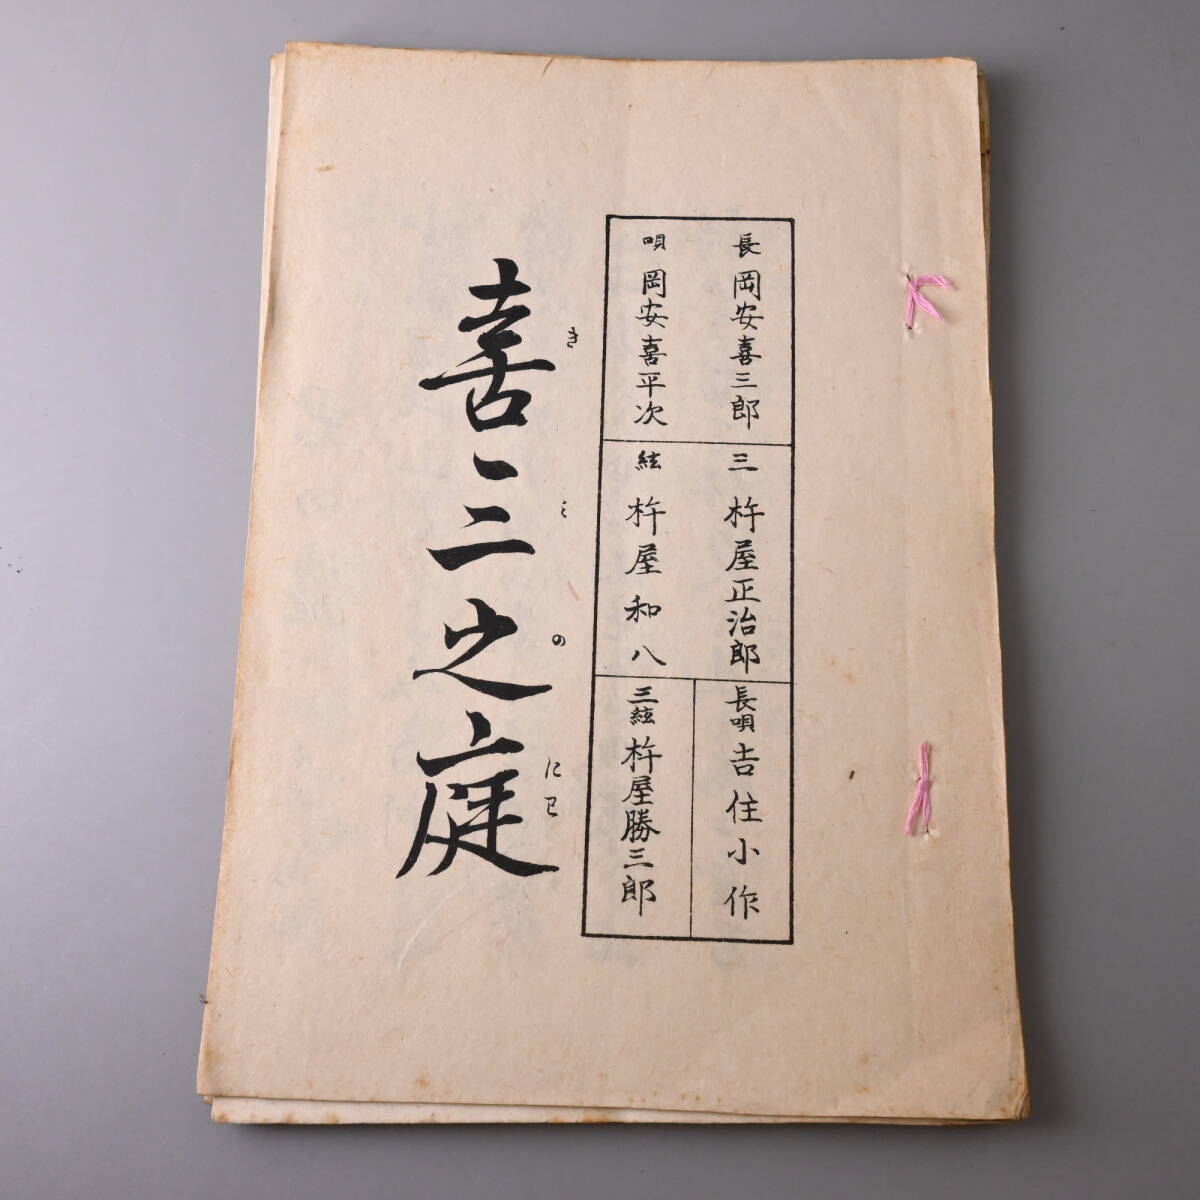 長 岡安喜三郎
唄 岡安喜平次
三 杵屋正治郎
絃 杵屋和八
長唄 吉住小作
三絃 杵屋勝三郎
喜三之庭
きみのにわ